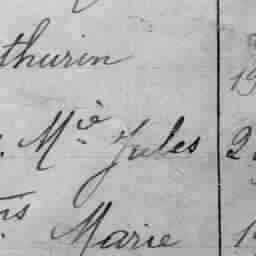 thurin
Mie Jules 2
ns Marie 1